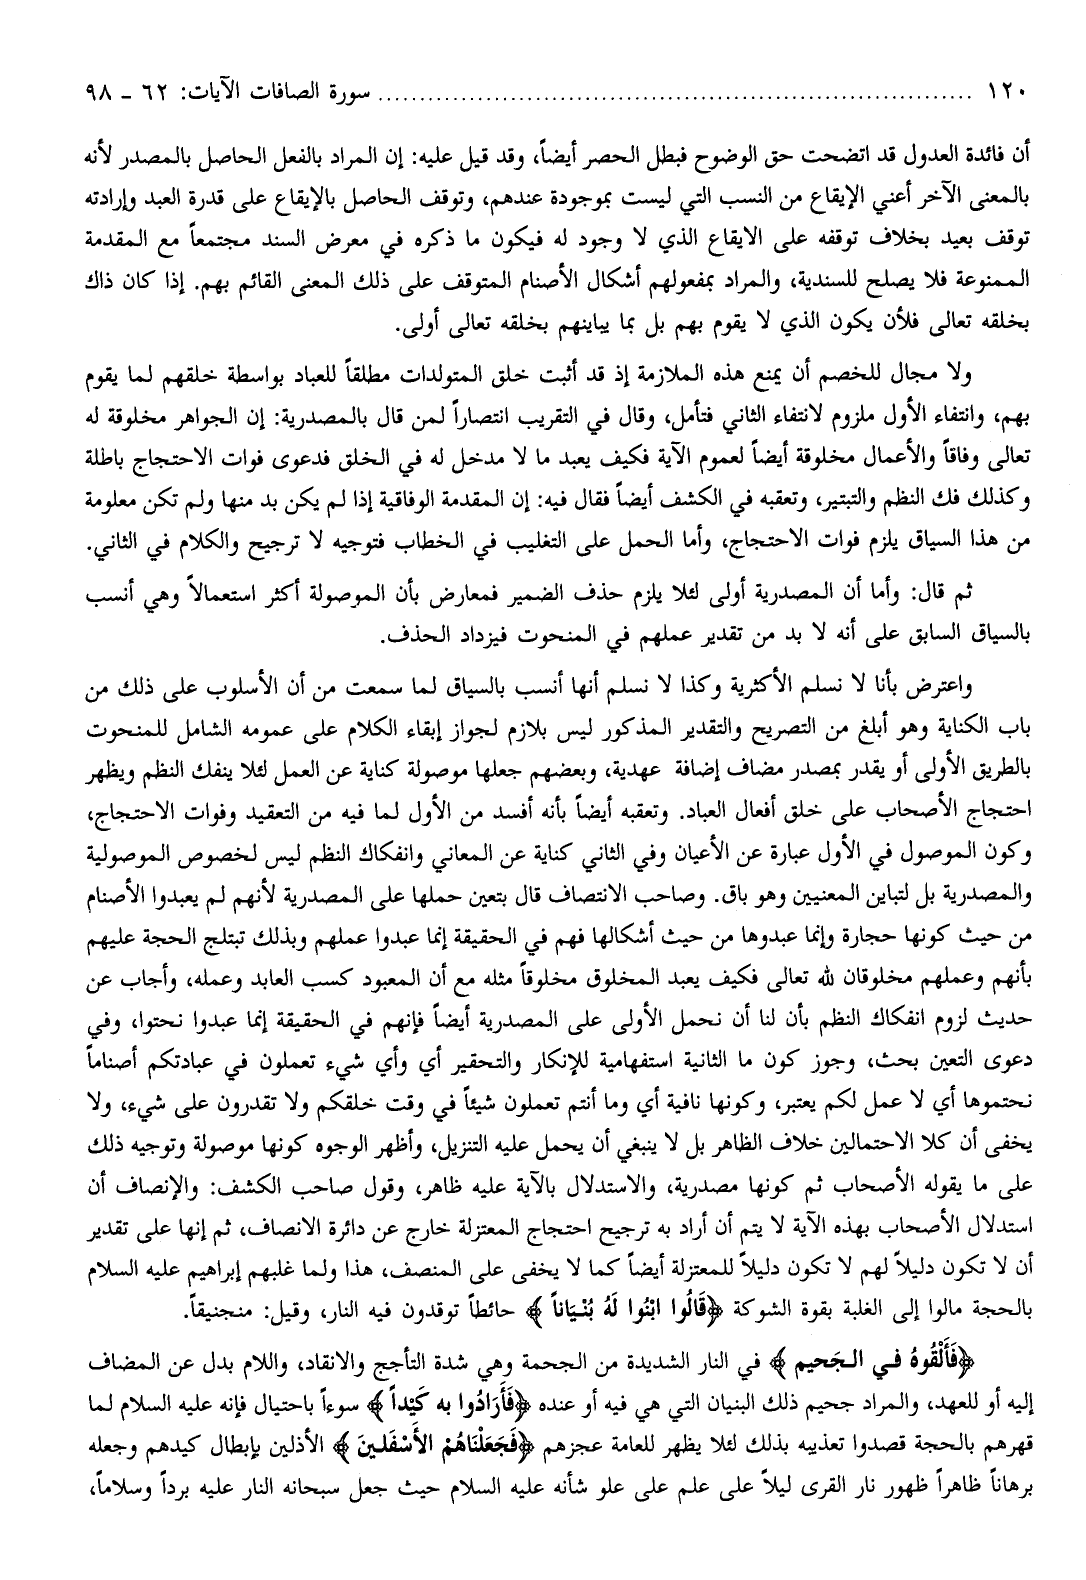 ١٢٠ .......................................................................... سورة الصافات الآيات: ٦٢ - ٩٨
أن فائدة العدول قد اتضحت حق الوضوح فبطل الحصر أيضاً، وقد قيل عليه: إن المراد بالفعل الحاصل بالمصدر لأنه
بالمعنى الآخر أعني الإيقاع من النسب التي ليست بموجودة عندهم، وتوقف الحاصل بالإيقاع على قدرة العبد وإرادته
توقف بعيد بخلاف توقفه على الايقاع الذي لا وجود له فيكون ما ذكره في معرض السند مجتمعاً مع المقدمة
الممنوعة فلا يصلح للسندية، والمراد بمفعولهم أشكال الأصنام المتوقف على ذلك المعنى القائم بهم. إذا كان ذاك
بخلقه تعالى فلأن يكون الذي لا يقوم بهم بل بما يباينهم بخلقه تعالى أولى.
ولا مجال للخصم أن يمنع هذه الملازمة إذ قد أثبت خلق المتولدات مطلقاً للعباد بواسطة خلقهم لما يقوم
بهم، وانتفاء الأول ملزوم لانتفاء الثاني فتأمل، وقال في التقريب انتصاراً لمن قال بالمصدرية: إن الجواهر مخلوقة له
تعالى وفاقاً والأعمال مخلوقة أيضاً لعموم الآية فكيف يعبد ما لا مدخل له في الخلق فدعوى فوات الاحتجاج باطلة
وكذلك فك النظم والتبتير، وتعقبه في الكشف أيضاً فقال فيه: إن المقدمة الوفاقية إذا لم يكن بد منها ولم تكن معلومة
من هذا السياق يلزم فوات الاحتجاج، وأما الحمل على التغليب في الخطاب فتوجيه لا ترجيح والكلام في الثاني.
ثم قال: وأما أن المصدرية أولى لئلا يلزم حذف الضمير فمعارض بأن الموصولة أكثر استعمالاً وهي أنسب
بالسياق السابق على أنه لا بد من تقدير عملهم في المنحوت فيزداد الحذف.
واعترض بأنا لا نسلم الأكثرية وكذا لا نسلم أنها أنسب بالسياق لما سمعت من أن الأسلوب على ذلك من
باب الكناية وهو أبلغ من التصريح والتقدير المذكور ليس بلازم لجواز إبقاء الكلام على عمومه الشامل للمنحوت
بالطريق الأولى أو يقدر بمصدر مضاف إضافة عهدية، وبعضهم جعلها موصولة كناية عن العمل لئلا ينفك النظم ويظهر
احتجاج الأصحاب على خلق أفعال العباد. وتعقبه أيضاً بأنه أفسد من الأول لما فيه من التعقيد وفوات الاحتجاج،
وكون الموصول في الأول عبارة عن الأعيان وفي الثاني كناية عن المعاني وانفكاك النظم ليس لخصوص الموصولية
والمصدرية بل لتباين المعنيين وهو باق. وصاحب الانتصاف قال بتعين حملها على المصدرية لأنهم لم يعبدوا الأصنام
من حيث كونها حجارة وإنما عبدوها من حيث أشكالها فهم في الحقيقة إنما عبدوا عملهم وبذلك تبتلج الحجة عليهم
بأنهم وعملهم مخلوقان لله تعالى فكيف يعبد المخلوق مخلوقاً مثله مع أن المعبود كسب العابد وعمله، وأجاب عن
حديث لزوم انفكاك النظم بأن لنا أن نحمل الأولى على المصدرية أيضاً فإنهم في الحقيقة إنما عبدوا نحتوا، وفي
دعوى التعين بحث، وجوز كون ما الثانية استفهامية للإنكار والتحقير أي وأي شيء تعملون في عبادتكم أصناماً
نحتموها أي لا عمل لكم يعتبر، وكونها نافية أي وما أنتم تعملون شيئاً في وقت خلقكم ولا تقدرون على شيء، ولا
يخفى أن كلا الاحتمالين خلاف الظاهر بل لا ينبغي أن يحمل عليه التنزيل، وأظهر الوجوه كونها موصولة وتوجيه ذلك
على ما يقوله الأصحاب ثم كونها مصدرية، والاستدلال بالآية عليه ظاهر، وقول صاحب الكشف: والإنصاف أن
استدلال الأصحاب بهذه الآية لا يتم أن أراد به ترجيح احتجاج المعتزلة خارج عن دائرة الانصاف، ثم إنها على تقدير
أن لا تكون دليلاً لهم لا تكون دليلاً للمعتزلة أيضاً كما لا يخفى على المنصف، هذا ولما غلبهم إبراهيم عليه السلام
بالحجة مالوا إلى الغلبة بقوة الشوكة ﴿قَالُوا ابْنُوا لَهُ بُنْيَاناً﴾ حائطاً توقدون فيه النار، وقيل: منجنيقاً.
﴿فَأَلْقُوهُ في الجَحيم﴾ في النار الشديدة من الجحمة وهي شدة التأجج والانقاد، واللام بدل عن المضاف
إليه أو للعهد، والمراد جحيم ذلك البنيان التي هي فيه أو عنده ﴿فَأَرَادُوا به كَيْداً﴾ سوءاً باحتيال فإنه عليه السلام لما
قهرهم بالحجة قصدوا تعذيبه بذلك لئلا يظهر للعامة عجزهم ﴿فَجَعَلْنَاهُمْ الأَسْفَلينَ﴾ الأذلين بإبطال كيدهم وجعله
برهاناً ظاهراً ظهور نار القرى ليلاً على علم على علو شأنه عليه السلام حيث جعل سبحانه النار عليه برداً وسلاماً،